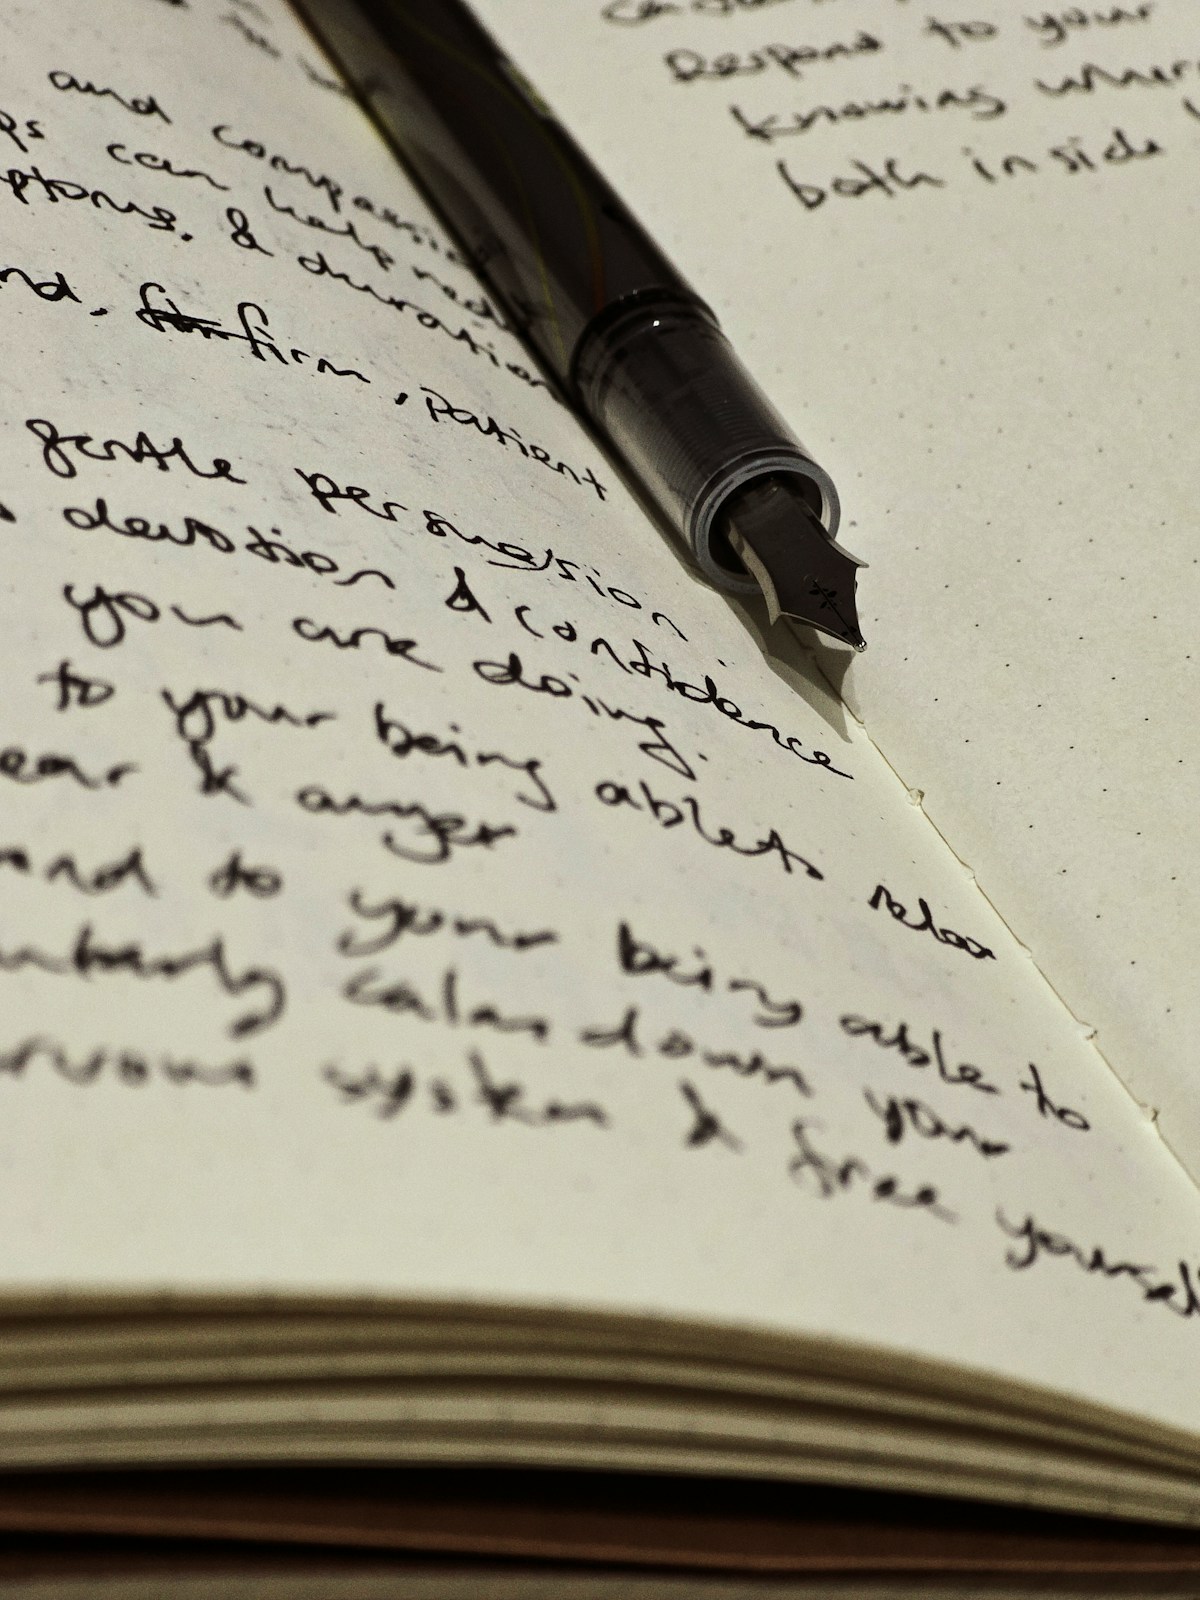 and compassion
can help redu
ptoms. & duration
nd, firm, patient
gentle persuasion.
devotion & confidence
you are doing.
to your being able to relax
ear & anger
and to your being able to
calm down your
ervous system & free yoursel
Respond to your
knowing wher
both inside